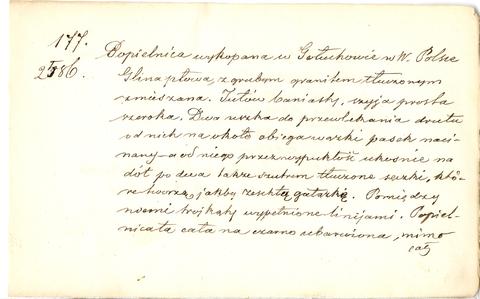 177.
2586.
Popielnica wykopana w Gołuchowie w W. Polsce
Glina płowa, z grubym granitem tłuczonym
zmieszana. Tułów baniasty, szyja prosta
szeroka. Dwa uszka do przewlekania drutu
od nich na około obiega wązki pasek naci-
nany a od niego przez wypukłość ukośnie na
dół po dwa takie tłuczone kłó-
re tworzą jakby zeschłą gałązkę. Pomiędzy
niemi trójkąty wypełnione linijami. Popiel-
nica ta cała na czarno ubarwiona, mimo
całą